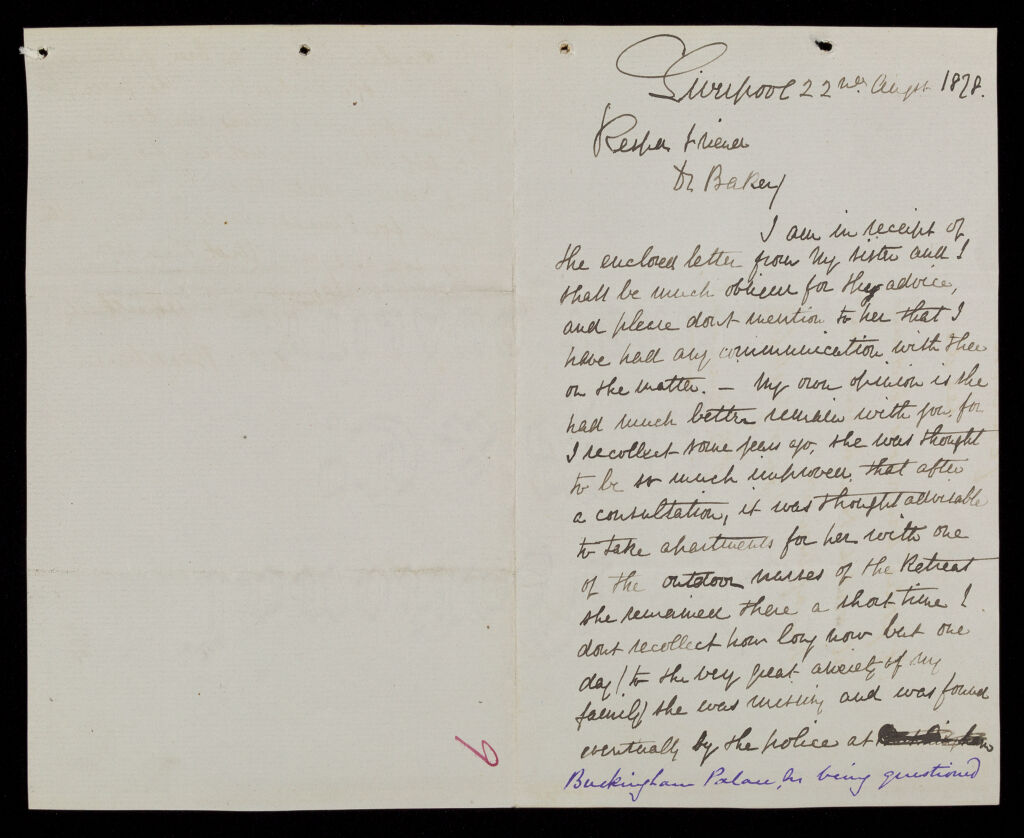 Liverpool 22nd Augst 1878.
Respd friend
Dr Baker/
I am in receipt of
the enclosed letter from my sister and I
shall be much obliged for thy advice,
and please dont mention to her that I
have had any communication with thee
on the matter. — My own opinion is she
had much better remain with you, for
I recollect some years ago, she was thought
to be so much improved, that after
a consultation, it was thought advisable
to take apartments for her with one
of the outdoor nurses of the Retreat
she remained there a short time I
dont recollect how long now but one
day (to the very great anxiety of my
family) she was missing and was found
eventually by the police at
Buckingham Palace, on being questioned
9